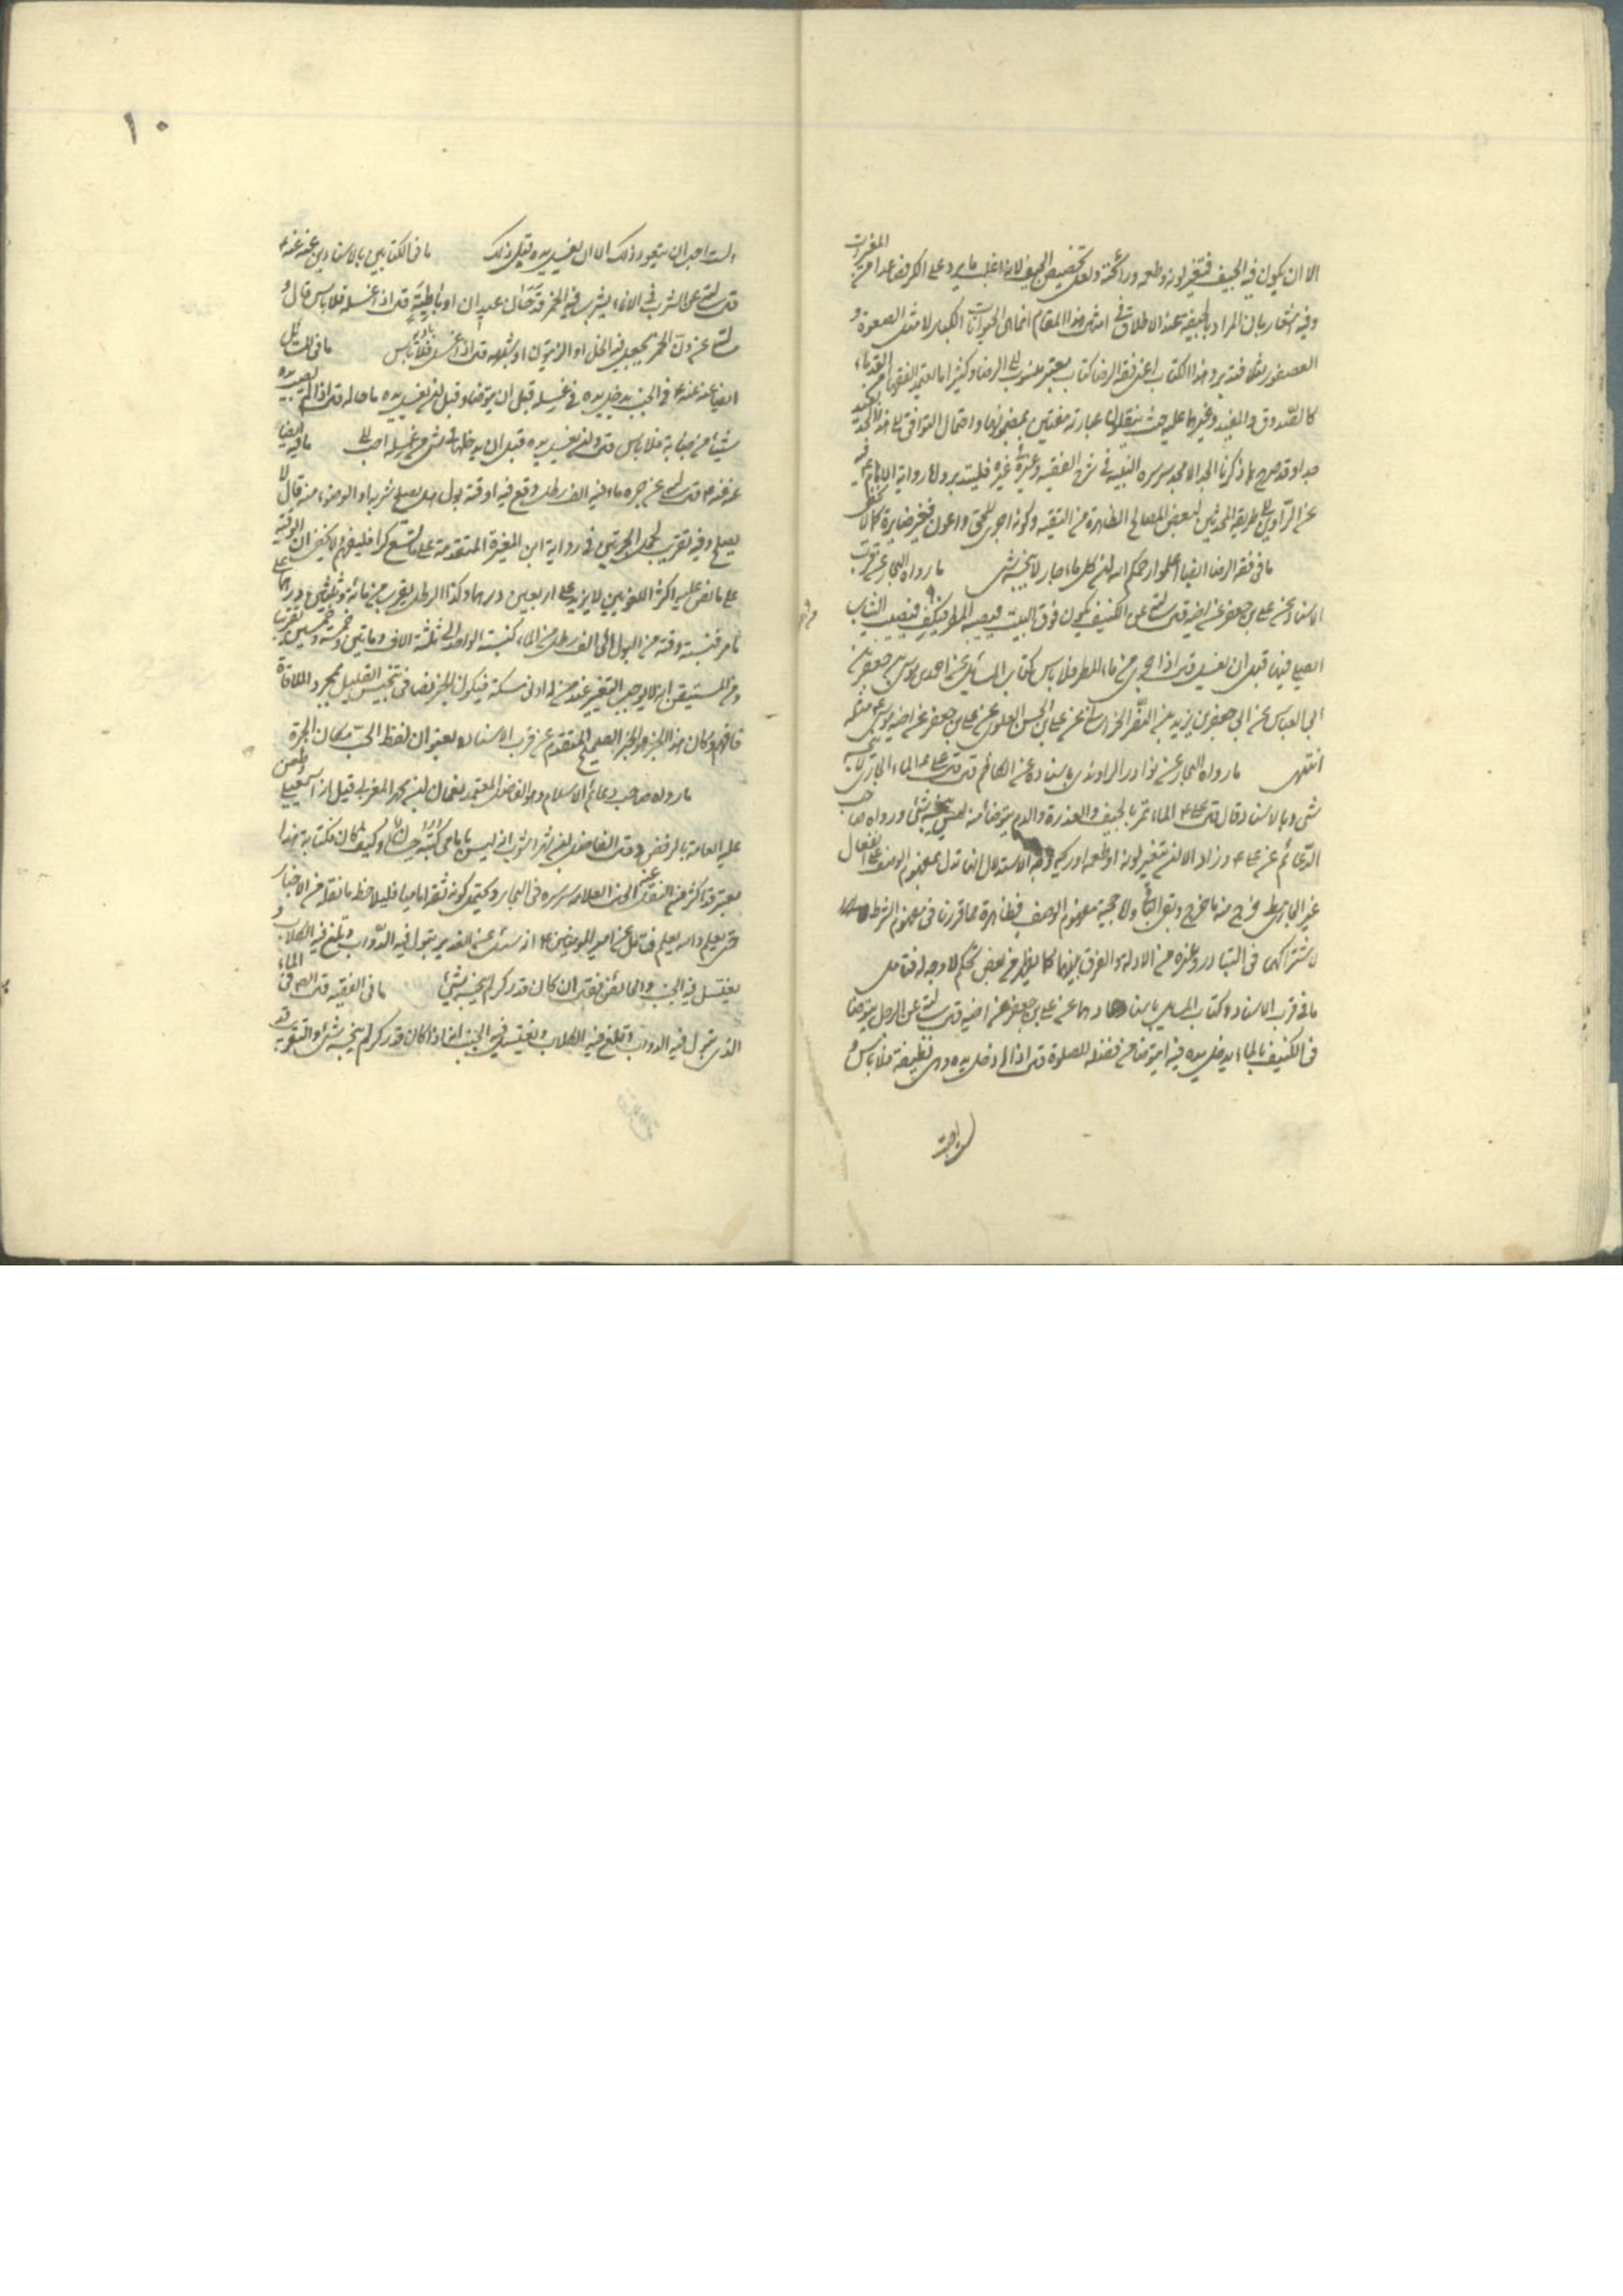 الا ان يكون فيه الجيف فتغير لونه وطعمه ورائحته ولعل تخصيص الجيف لانه اغلب ما يرد على الكر فصاعدا من المغيرات
وفيه اشعار بان المراد بالجيفة عند الاطلاق في امثال هذا المقام انما هى الحيوانات الكبار لا مثل الصعوة و
العصفور مثلا فتدبر وهذا الكتاب اعنى فقه الرضا كتاب معتبر منسوب الى الرضا وكثيرا ما يعتمد الفقهاء القدماء
كالصدوق والمفيد وغيرهما عليه حيث ينقلون عبارته مفتين بمضمونها واحتمال التوافق الى هذا الحد بعيد
جدا وقد صرح بما ذكرنا الجد الامجد سره النبيه فى شرح الفقيه وغيره فليتدبر
عن الراوين على طريقة المحدثين لبعض المصالح الظاهرة من التقية وكونه اجرى للحق واعون فغير ضايرة كما لا يخفى
ما فى فقه الرضا ايضا اعلموا رحمكم الله ان كل ماء جار لا ينجسه شئ ما رواه البحار عن قرب
الاسناد عن على بن جعفر عن اخيه قال سالته عن الكنيف يكون فوق البيت فيصيبه المطر فيكف فيصيب الثياب
ايصلى فيها قبل ان يغسل قال اذا جرى من ماء المطر فلا باس كتاب المسائل عن احمد بن موسى بن جعفر بن
ابى العباس عن ابى جعفر بن يزيد بن النضر الخراسانى عن على بن الحسن العلوى عن على بن جعفر عن اخيه موسى مثله
انتهى ما رواه البحار عن نوادر الراوندى باسناده عن الكاظم قال قال على الماء الجارى لا ينجسه
شئ وبالاسناد قال قال على الماء تمر بالجيف والعذرة والدم يتوضأ منه ليس ينجسه شئ ورواه صاحب
الدعائم عن على وزاد الا ان يتغير لونه او طعمه او ريحه وجه الاستدلال انها تدل بمفهوم الوصف على انفعال
غير الجارى مطلقا خرج منه ما خرج وبقى الباقى ولا حجية مفهوم الوصف فبظاهرة مما قررنا فى مفهوم الشرط
لاشتراكهما فى التبادر وغيره من الادلة والفرق بينهما كما يظهر من بعض تحكم لا وجه له فتامل
ما فى قرب الاسناد وكتاب المسايل باسنادهما عن على بن جعفر عن اخيه قال سالته عن الرجل يتوضا
فى الكنيف بالماء يدخل يده فيه ايتوضا من فضله للصلوة قال اذا ادخل يده وهى نظيفة فلا باس و
لست احب
١٠
لست احب ان يتعود ذلك الا ان يغسل يده قبل ذلك ما فى الكتابين بالاسنادين عنه عنه
قال سالته عن الشرب فى الاناء يشرب فيه الخمر قدحا ال عيدان او باطية قال اذا غسله فلا باس قال و
سالته عن دن الخمر يجعل فيه الخل او الزيتون او شبهه قال اذا غسل فلا باس ما فى المسائل
ايضا عنه عنه فى الجنب يدخل يده فى غسله قبل ان يتوضا وقبل ان يغسل يده ما حاله قال اذا لم يصب يده
شيئا من جنابة فلا باس قال وان يغسل يده قبل ان يدخلها فى شئ من غسله احب الى ما فيه ايضا
عنه عنه قال سالته عن جرة ماء فيه الف رطل وقع فيه اوقية بول هل يصلح شربه او الوضوء منه قال لا
يصلح وفيه تقريب لحمل الجرتين فى رواية ابن المغيرة المتقدمة على ما تسع كرا فليفهم ولا يخفى ان الوقية
على ما نص عليه اكثر اللغويين لا يزيد على اربعين درهما وكذا الرطل يقرب من مائة وثلثين درهما على
ما مر فنسبة وقية من البول الى الف رطل من الماء كنسبة الواحد الى ثلثة الاف ومائتين وخمسة وخمسين تقريبا
ومن المستيقن انه لا يوجب التغيير عند من له ادنى مسكة فيكون الخبر نصا فى تنجيس القليل بمجرد الملاقاة
فافهم وكان هذا الخبر هو الخبر الصحيح المتقدم عن قرب الاسناد بعنوان لفظ الحب مكان الجرة
ما رواه صاحب دعائم الاسلام وهو الفاضل المعتمد نعمان بن محمد المغربى قيل انه اسمعيلى وطعن
عليه العامة بالرفض وقال الفاضل ابن شهراشوب انه ليس بامامى كتبه حسان وكيف كان فكتابه هذا
معتبر قد اكثر من النقل عنه الجد العلامة سره فى البحار ويحتمل كونه ثقة اماميا فليلاحظ ما نقله من الاخبار
حتى يعلم والله يعلم فتامل عن امير المؤمنين انه سئل عن الغدير تبول فيه الدواب وتلغ فيه الكلاب و
يغتسل فيه الجنب والحائض فقال ان كان قدر كر لم ينجسه شئ ما فى الفقيه قال الصادق فى الماء
الذى تبول فيه الدواب وتلغ فيه الكلاب ويغتسل فيه الجنب انه اذا كان قدر كر لم ينجسه شئ والتقريب قد